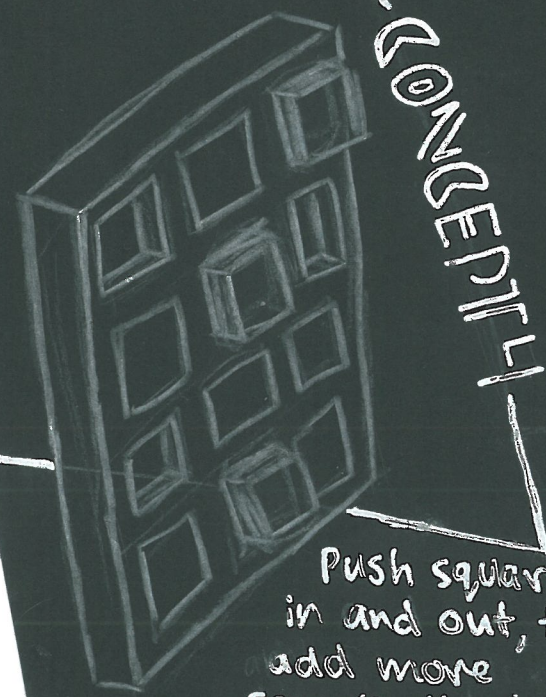 CONCEPT 4
Push squar
in and out,
add more